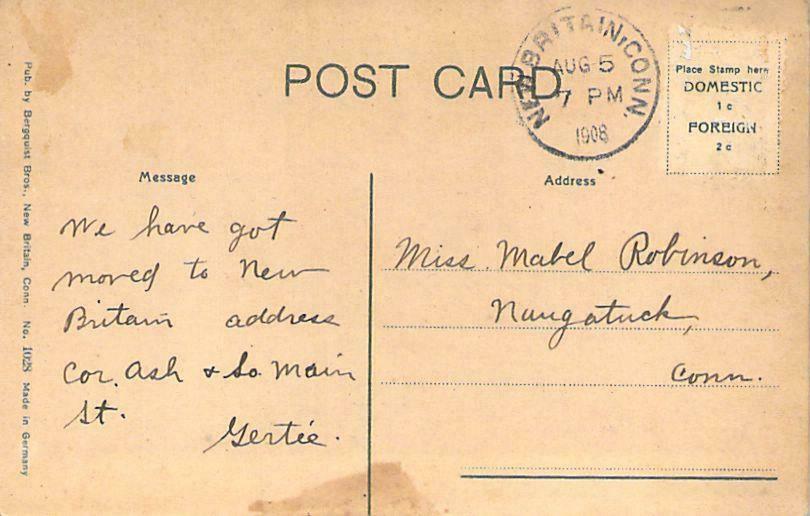 POST CARD
NEW BRITAIN, CONN.
AUG 5
7 PM
1908
Place Stamp here
DOMESTIC
1c
FOREIGN
2c
Message
Address
We have got
moved to New
Britain address
Cor. Ash & So. Main
St.
Gertie.
Miss. Mabel Robinson,
Naugatuck,
Conn.
Pub. by Bergquist Bros., New Britain, Conn. No. 1028 Made in Germany